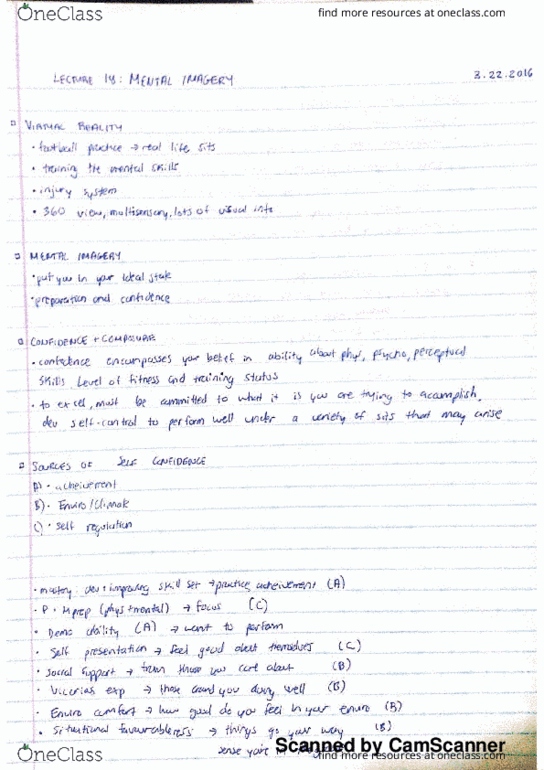 OneClass
find more resources at oneclass.com
LECTURE 18: MENTAL IMAGERY 3.22.2016
VIRTUAL REALITY
• football practice → real life sits
• training the mental skills
• injury system
• 360 view, multisensory, lots of visual info
MENTAL IMAGERY
• put you in your ideal state
• preparation and confidence
CONFIDENCE + COMPOSURE
• confidence encompasses your belief in ability about phys, psycho, perceptual
skills level of fitness and training status
• to excel, must be committed to what it is you are trying to accomplish,
dev self-control to perform well under a variety of sits that may arise
SOURCES OF SELF CONFIDENCE
A) • acheivement
B) • Enviro/Climate
C) • self regulation
• mastery: dev + improving skill set → practice, acheivement (A)
• P + M prep (phys + mental) → focus (C)
• Demo ability (A) → want to perform
• Self presentation → feel good about themselves (C)
• Social support → from those you care about (B)
• Vicarias exp → those around you doing well (B)
• Enviro comfort → how good do you feel in your enviro (B)
• Situational favourableness → things go your way (B)
sense you're in
Scanned by CamScanner
OneClass
find more resources at oneclass.com